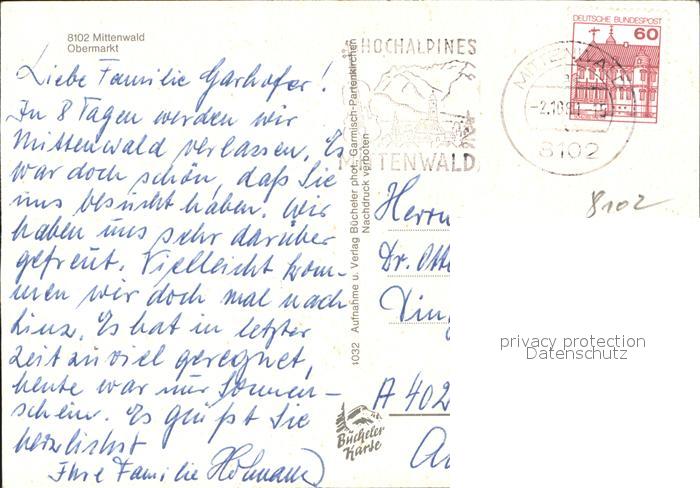 8102 Mittenwald
Obermarkt
Liebe Familie Garhofer!
In 8 Tagen werden wir
Mittenwald verlassen. Es
war doch schön, daß Sie
uns besucht haben. Wir
haben uns sehr darüber
gefreut. Vielleicht kom-
men wir doch mal nach
Linz. Es hat in letzter
Zeit zuviel geregnet,
heute war nur Sonnen-
schein. Es grüßt Sie
herzlichst
Ihre Familie
1032 Aufnahme u. Verlag Bücheler phot. Garmisch-Partenkirchen
Nachdruck verboten
HOCHALPINES
MITTENWALD
MITTENWALD
8102
DEUTSCHE BUNDESPOST
60
8102
Herrn
Dr. Otto
A 402
privacy protection
Datenschutz
Bücheler
Karte